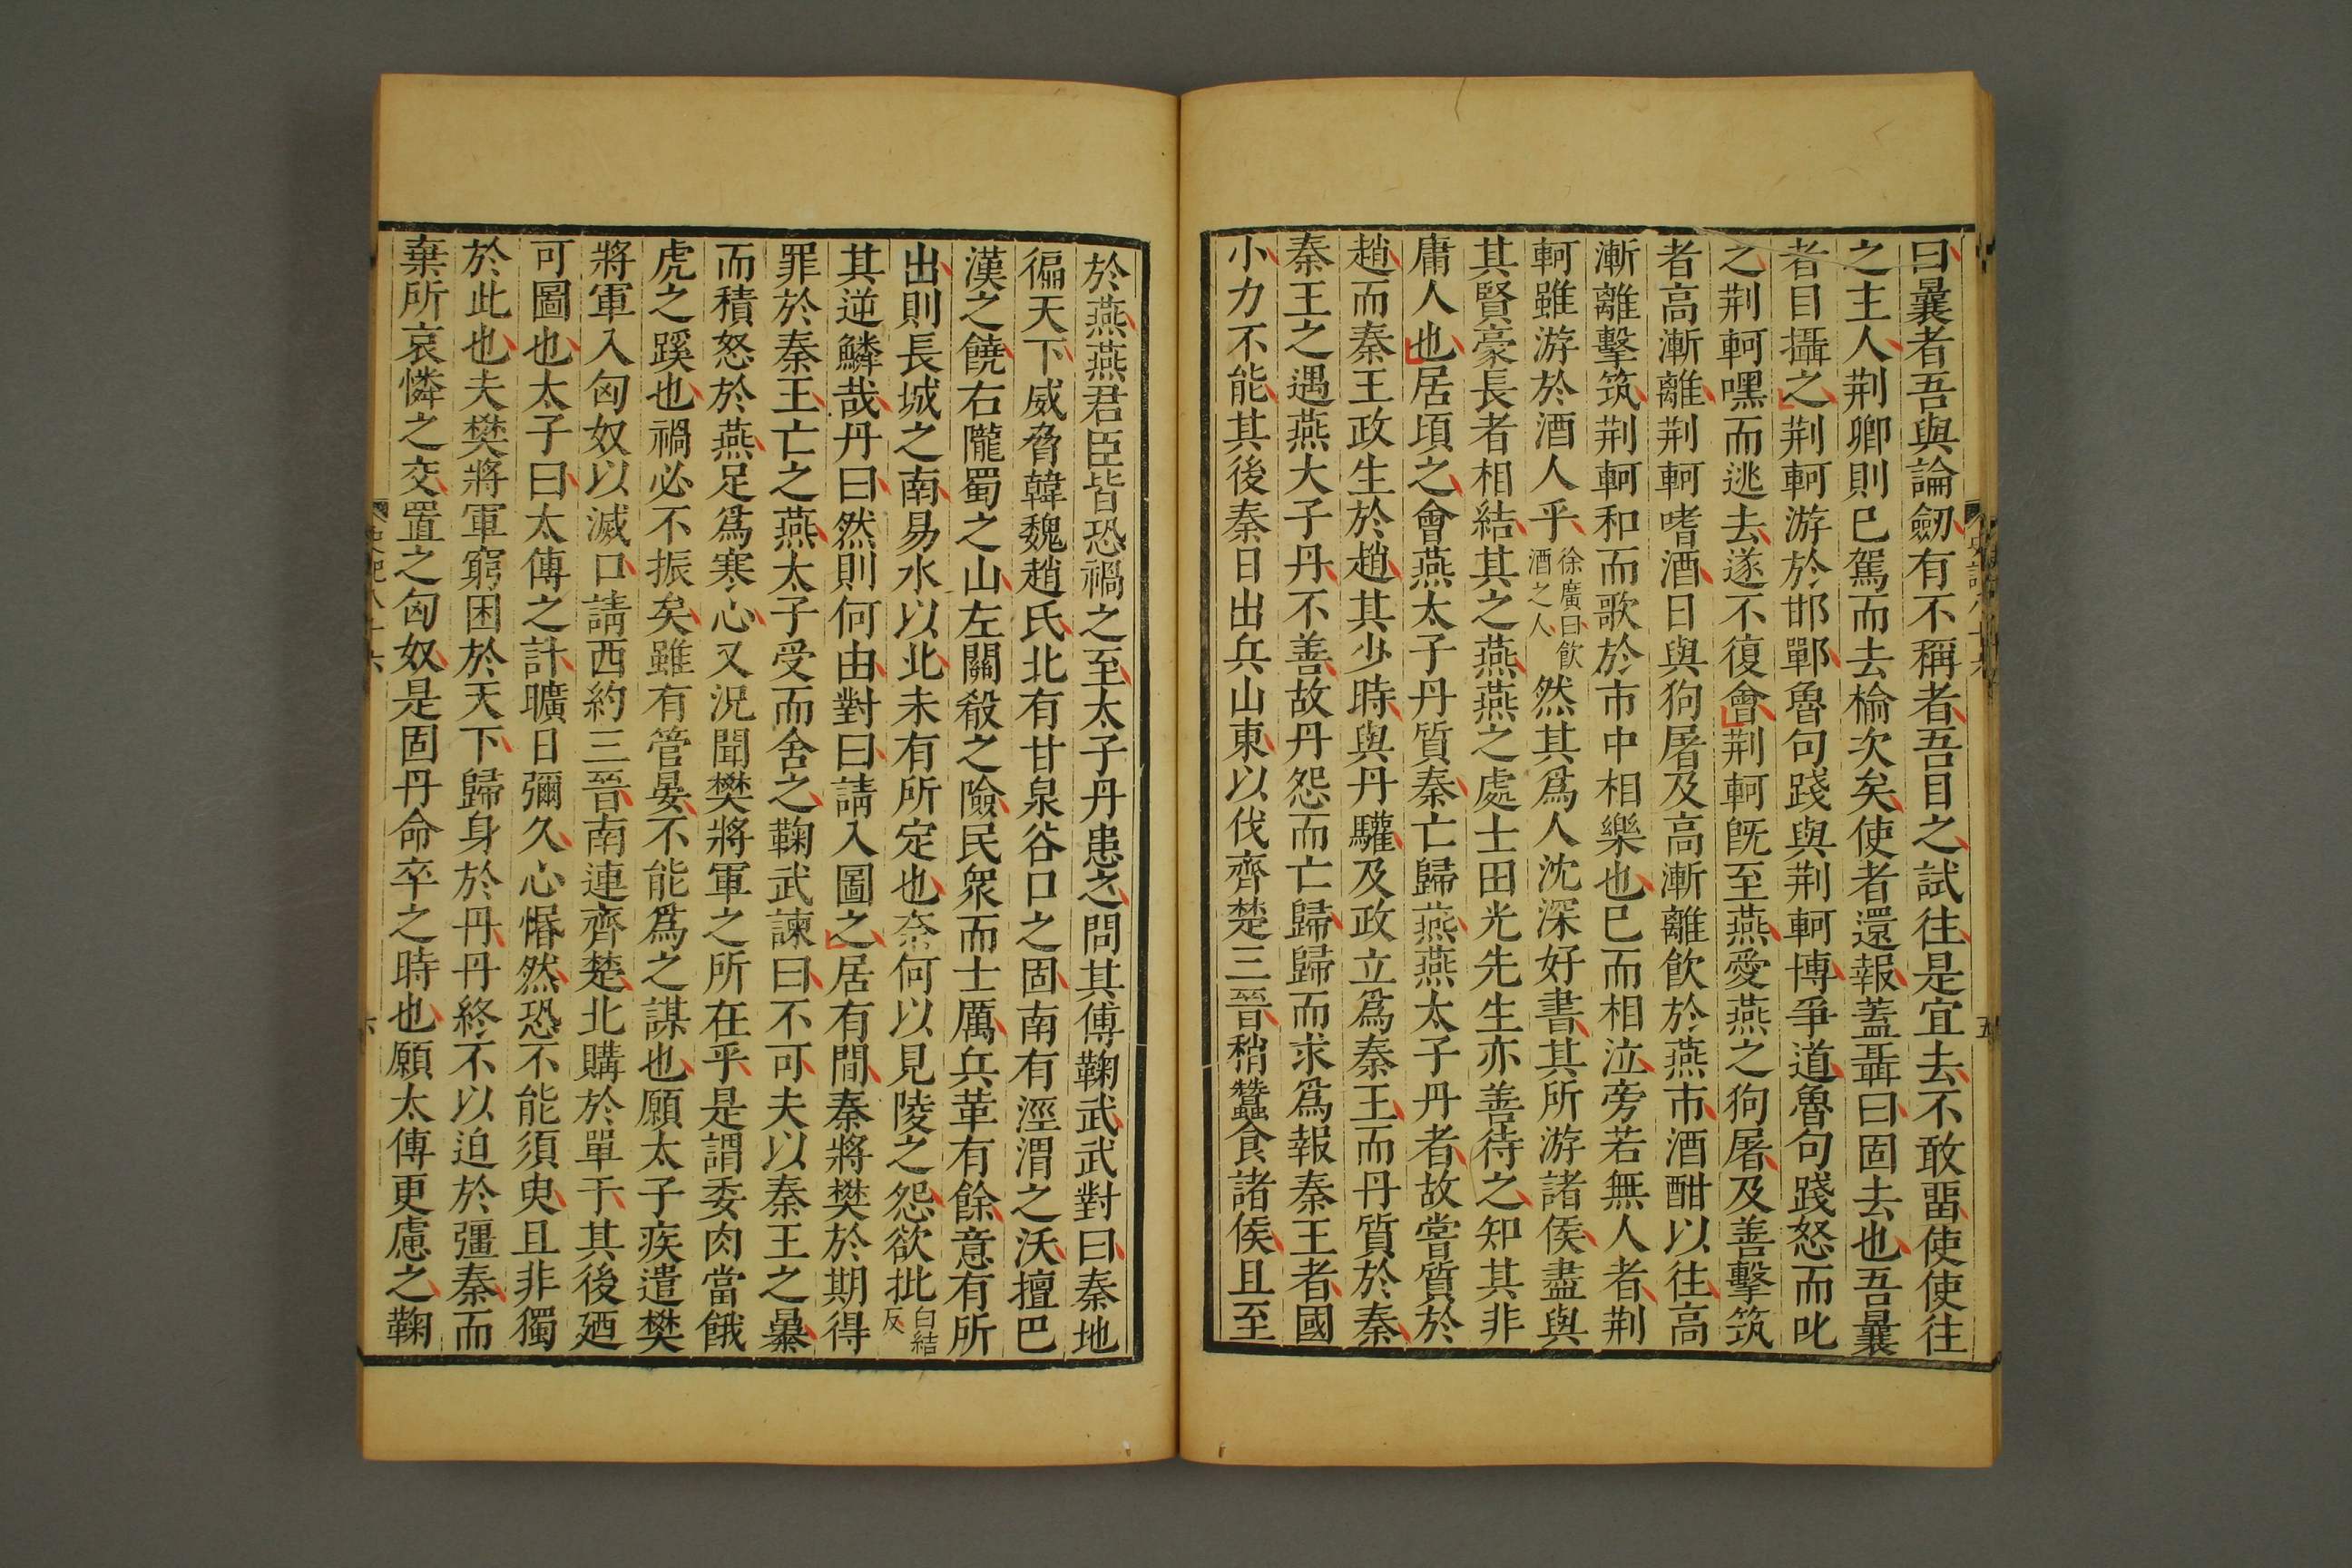 曰曩者吾與論劒有不稱者吾目之試往是宜去不敢畱使使往
之主人荆卿則已駕而去榆次矣使者還報蓋聶曰固去也吾曩
者目攝之荆軻游於邯鄲魯句踐與荆軻博爭道魯句踐怒而叱
之荆軻嘿而逃去遂不復會荆軻旣至燕愛燕之狗屠及善擊筑
者高漸離荆軻嗜酒日與狗屠及高漸離飲於燕市酒酣以往高
漸離擊筑荆軻和而歌於市中相樂也已而相泣旁若無人者荆
軻雖游於酒人乎徐廣曰飲酒之人然其爲人沈深好書其所游諸侯盡與
其賢豪長者相結其之燕燕之處士田光先生亦善待之知其非
庸人也居頃之會燕太子丹質秦亡歸燕燕太子丹者故嘗質於
趙而秦王政生於趙其少時與丹驩及政立爲秦王而丹質於秦
秦王之遇燕大子丹不善故丹怨而亡歸歸而求爲報秦王者國
小力不能其後秦日出兵山東以伐齊楚三晉稍蠶食諸侯且至
史記八十六
五
於燕燕君臣皆恐禍之至太子丹患之問其傅鞠武武對曰秦地
徧天下威脅韓魏趙氏北有甘泉谷口之固南有涇渭之沃擅巴
漢之饒右隴蜀之山左關殽之險民衆而士厲兵革有餘意有所
出則長城之南易水以北未有所定也奈何以見陵之怨欲批白結反
其逆鱗哉丹曰然則何由對曰請入圖之居有間秦將樊於期得
罪於秦王亡之燕太子受而舍之鞠武諫曰不可夫以秦王之暴
而積怒於燕足爲寒心又況聞樊將軍之所在乎是謂委肉當餓
虎之蹊也禍必不振矣雖有管晏不能爲之謀也願太子疾遣樊
將軍入匈奴以滅口請西約三晉南連齊楚北購於單于其後廼
可圖也太子曰太傅之計曠日彌久心惛然恐不能須臾且非獨
於此也夫樊將軍窮困於天下歸身於丹丹終不以迫於彊秦而
棄所哀憐之交置之匈奴是固丹命卒之時也願太傅更慮之鞠
史記八十六
六